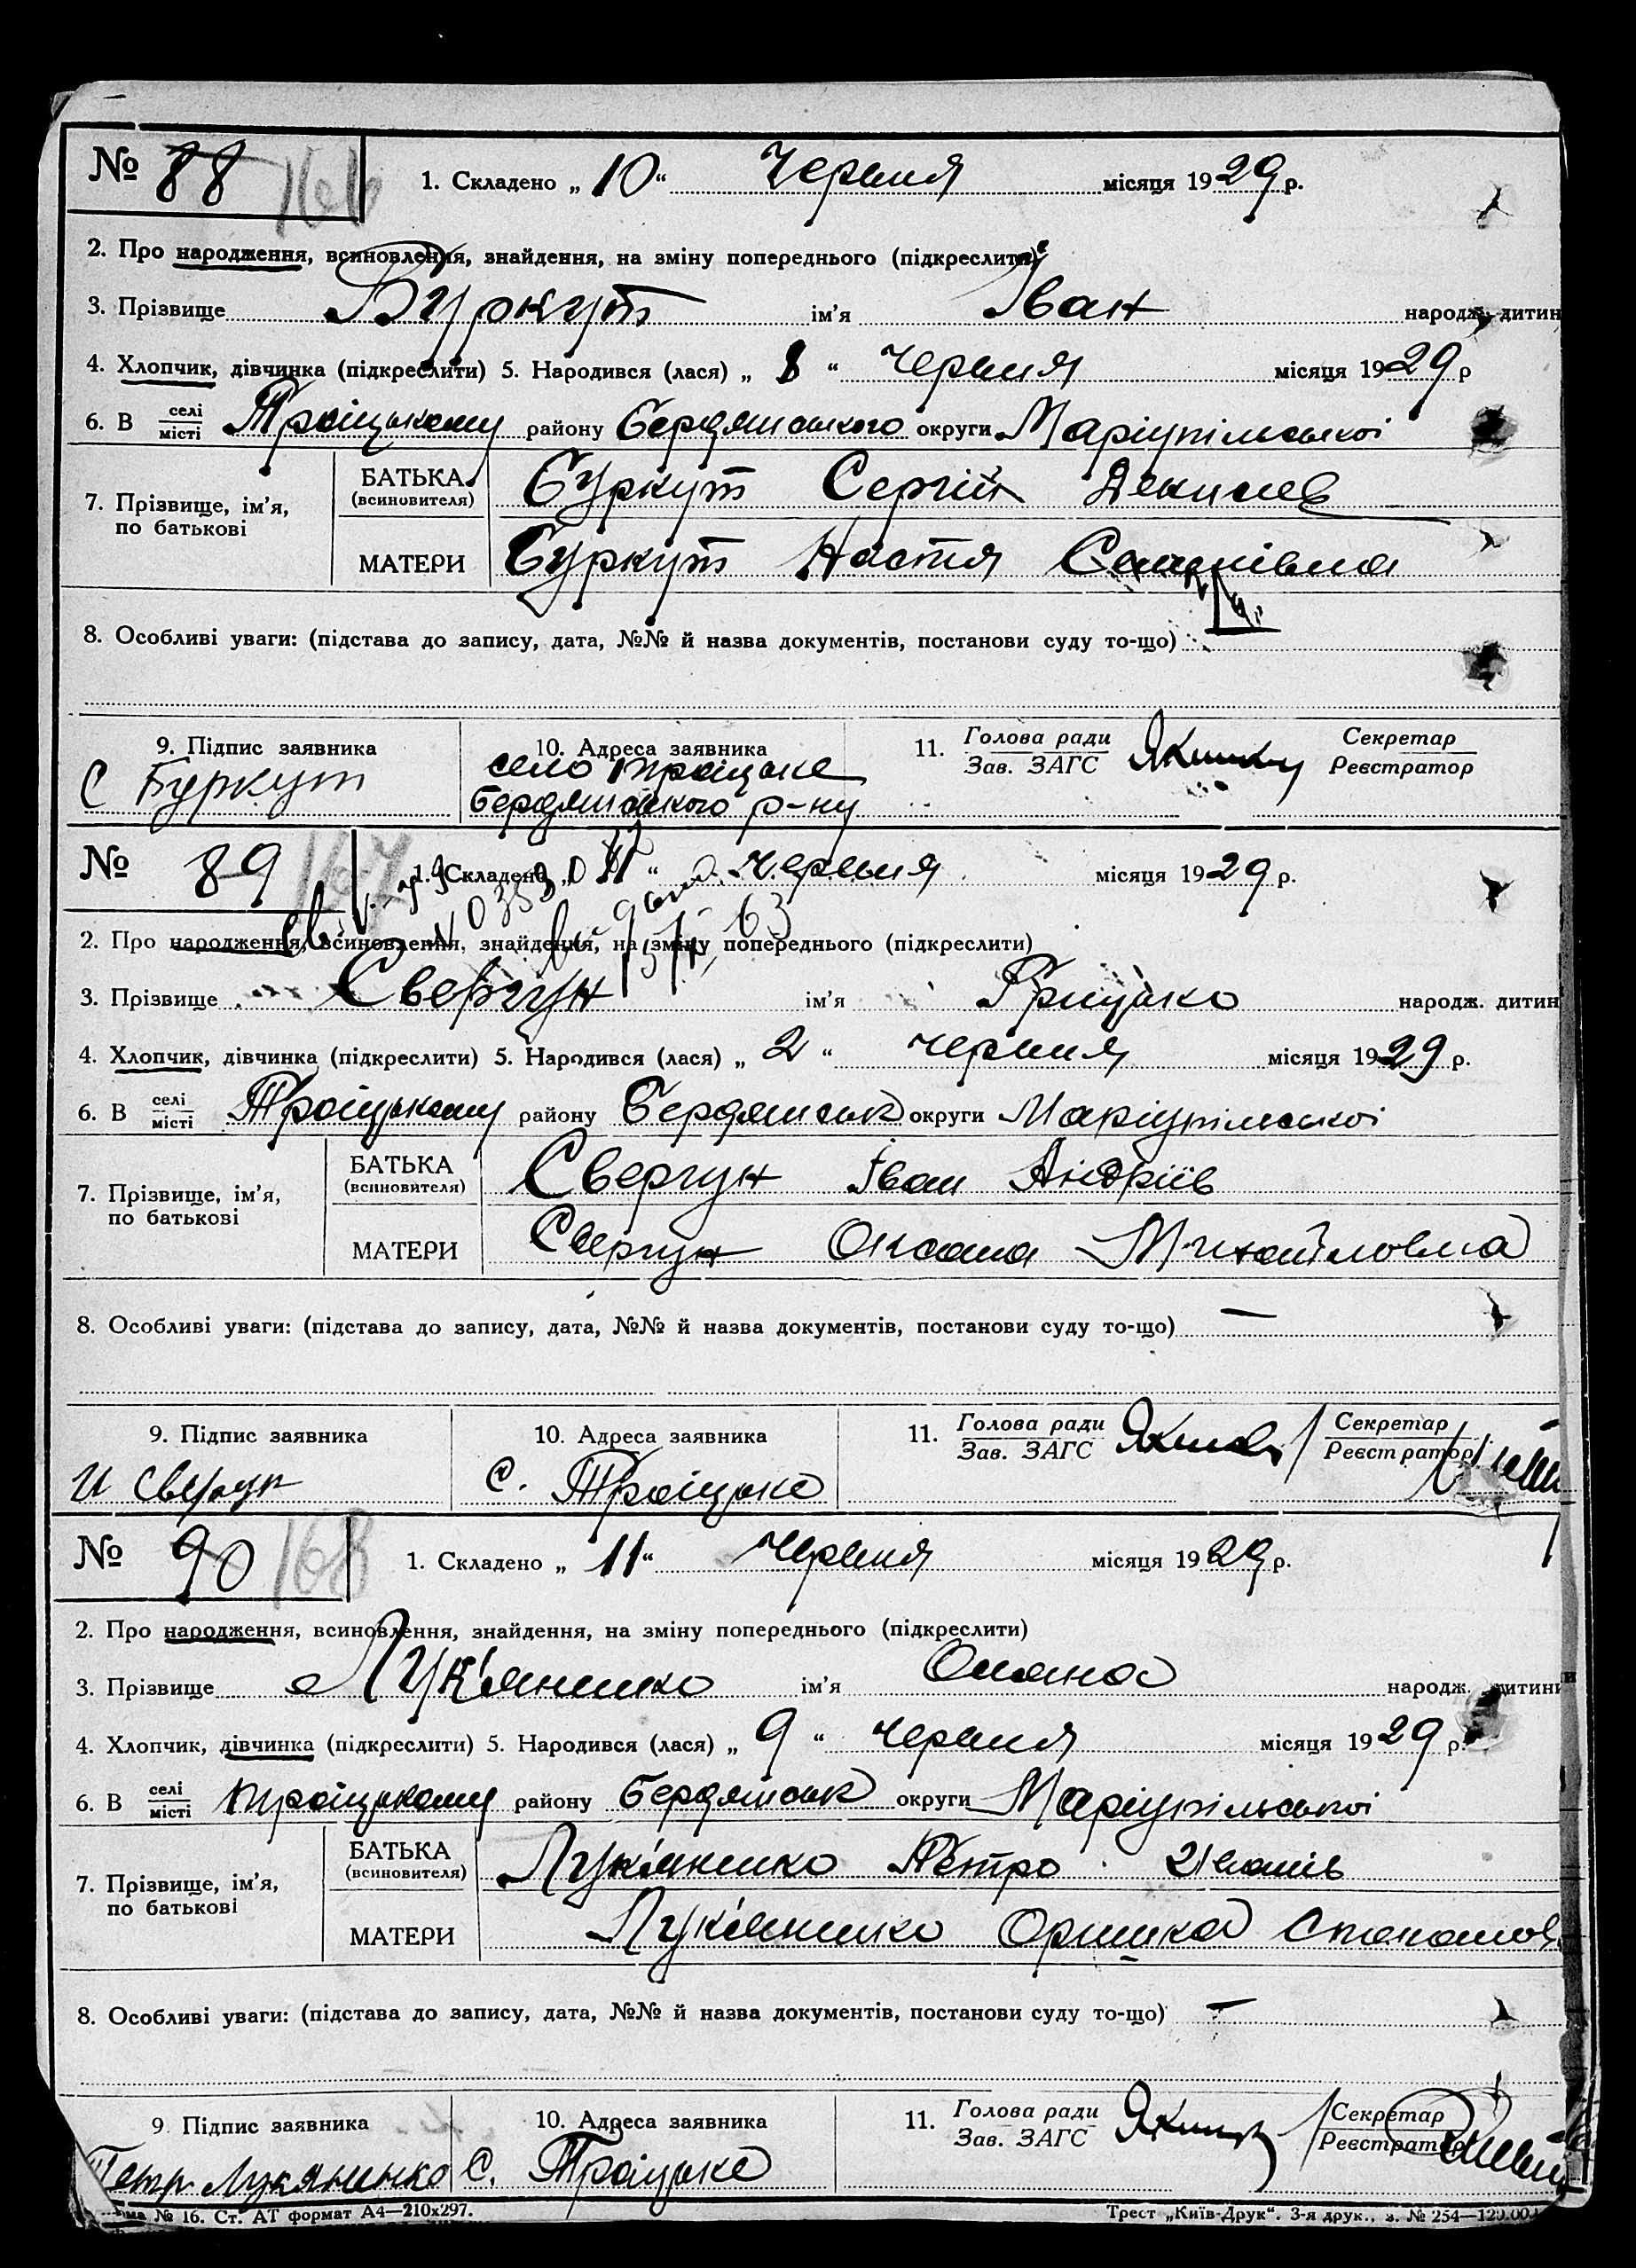 № 88 166 1. Складено „ 10 “ Червня місяця 1929 р.
2. Про народження, всиновлення, знайдення, на зміну попереднього (підкреслити)
3. Прізвище Буркут ім’я Іван народж. дитин
4. Хлопчик, дівчинка (підкреслити) 5. Народився (лася) „ 8 “ червня місяця 1929 р
6. В селі/місті Троіцькому району Бердянського округи Маріупільськоі
7. Прізвище, ім’я, по батькові
БАТЬКА (всиновителя) Буркут Сергій Денисів
МАТЕРИ Буркут Настя
8. Особливі уваги: (підстава до запису, дата, №№ й назва документів, постанови суду то-що)
9. Підпис заявника 10. Адреса заявника 11. Голова ради Зав. ЗАГС Секретар Реєстратор
С Буркут село Троіцьке Бердянського р-ну
№ 89 167 1. Складено „ 11 “ Червня місяця 1929 р.
2. Про народження, всиновлення, знайдення, на зміну попереднього (підкреслити)
3. Прізвище Свергун ім’я Грицько народж. дитин
4. Хлопчик, дівчинка (підкреслити) 5. Народився (лася) „ 2 “ червня місяця 1929 р.
6. В селі/місті Троіцькому району Бердянськ округи Маріупільськоі
7. Прізвище, ім’я, по батькові
БАТЬКА (всиновителя) Свергун Іван Андріїв
МАТЕРИ Свергун Оксана Михайловна
8. Особливі уваги: (підстава до запису, дата, №№ й назва документів, постанови суду то-що) —
9. Підпис заявника 10. Адреса заявника 11. Голова ради Зав. ЗАГС Секретар Реєстратор
И Свергун с. Троіцьке
№ 90 168 1. Складено „ 11 “ червня місяця 1929 р.
2. Про народження, всиновлення, знайдення, на зміну попереднього (підкреслити)
3. Прізвище Лук'яненко ім’я Оляна народж. дитини
4. Хлопчик, дівчинка (підкреслити) 5. Народився (лася) „ 9 “ червня місяця 1929 р.
6. В селі/місті Троіцькому району Бердянськ округи Маріупільськоі
7. Прізвище, ім’я, по батькові
БАТЬКА (всиновителя) Лук'яненко Петро
МАТЕРИ Лук'яненко Оришка Степанов
8. Особливі уваги: (підстава до запису, дата, №№ й назва документів, постанови суду то-що) —
9. Підпис заявника 10. Адреса заявника 11. Голова ради Зав. ЗАГС Секретар Реєстратор
Петр Лукяненко с. Троіцьке
№ 16. Ст. АТ формат А4—210х297. Трест „Київ-Друк“. 3-я друк., з. № 254—120.00